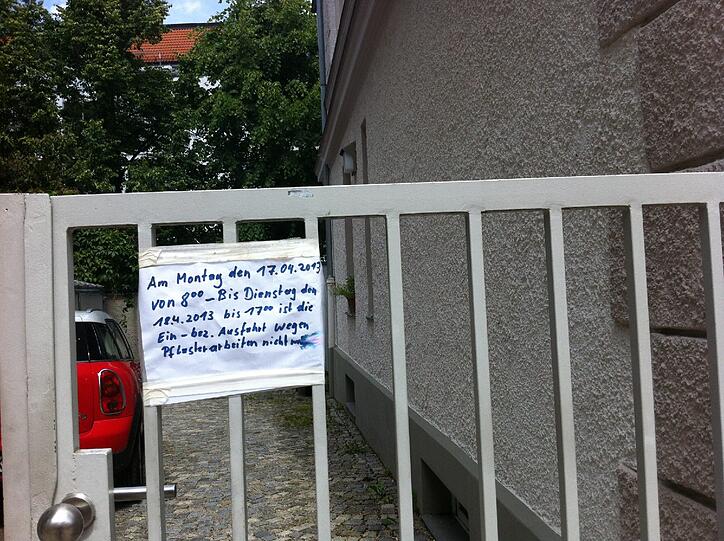 Am Montag den 17.04.2013
von 8⁰⁰ - Bis Dienstag den
18.4.2013 bis 17⁰⁰ ist die
Ein - bez. Ausfahrt wegen
Pflasterarbeiten nicht